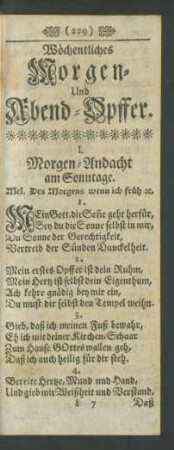 (229)
Wöchentliches
Morgen-
Und
Abend-Opffer.
I.
Morgen-Andacht
am Sonntage.
Mel. Des Morgens wenn ich früh ꝛc.
1.
MEin Gott, die Soñe geht herfür,
Sey du die Sonne selbst in mir,
Du Sonne der Gerechtigkeit,
Vertreib der Sünden Dunckelheit.
2.
Mein erstes Opffer ist dein Ruhm,
Mein Hertz ist selbst dein Eigenthum,
Ach kehre gnädig bey mir ein,
Du must dir selbst den Tempel weihn.
3.
Gieb, daß ich meinen Fuß bewahr,
Eh ich mit deiner Kirchen-Schaar
Zum Hause GOttes wallen geh,
Daß ich auch heilig für dir steh.
4.
Bereite Hertze, Mund und Hand,
Und gieb mir Weißheit und Verstand,
7 Daß